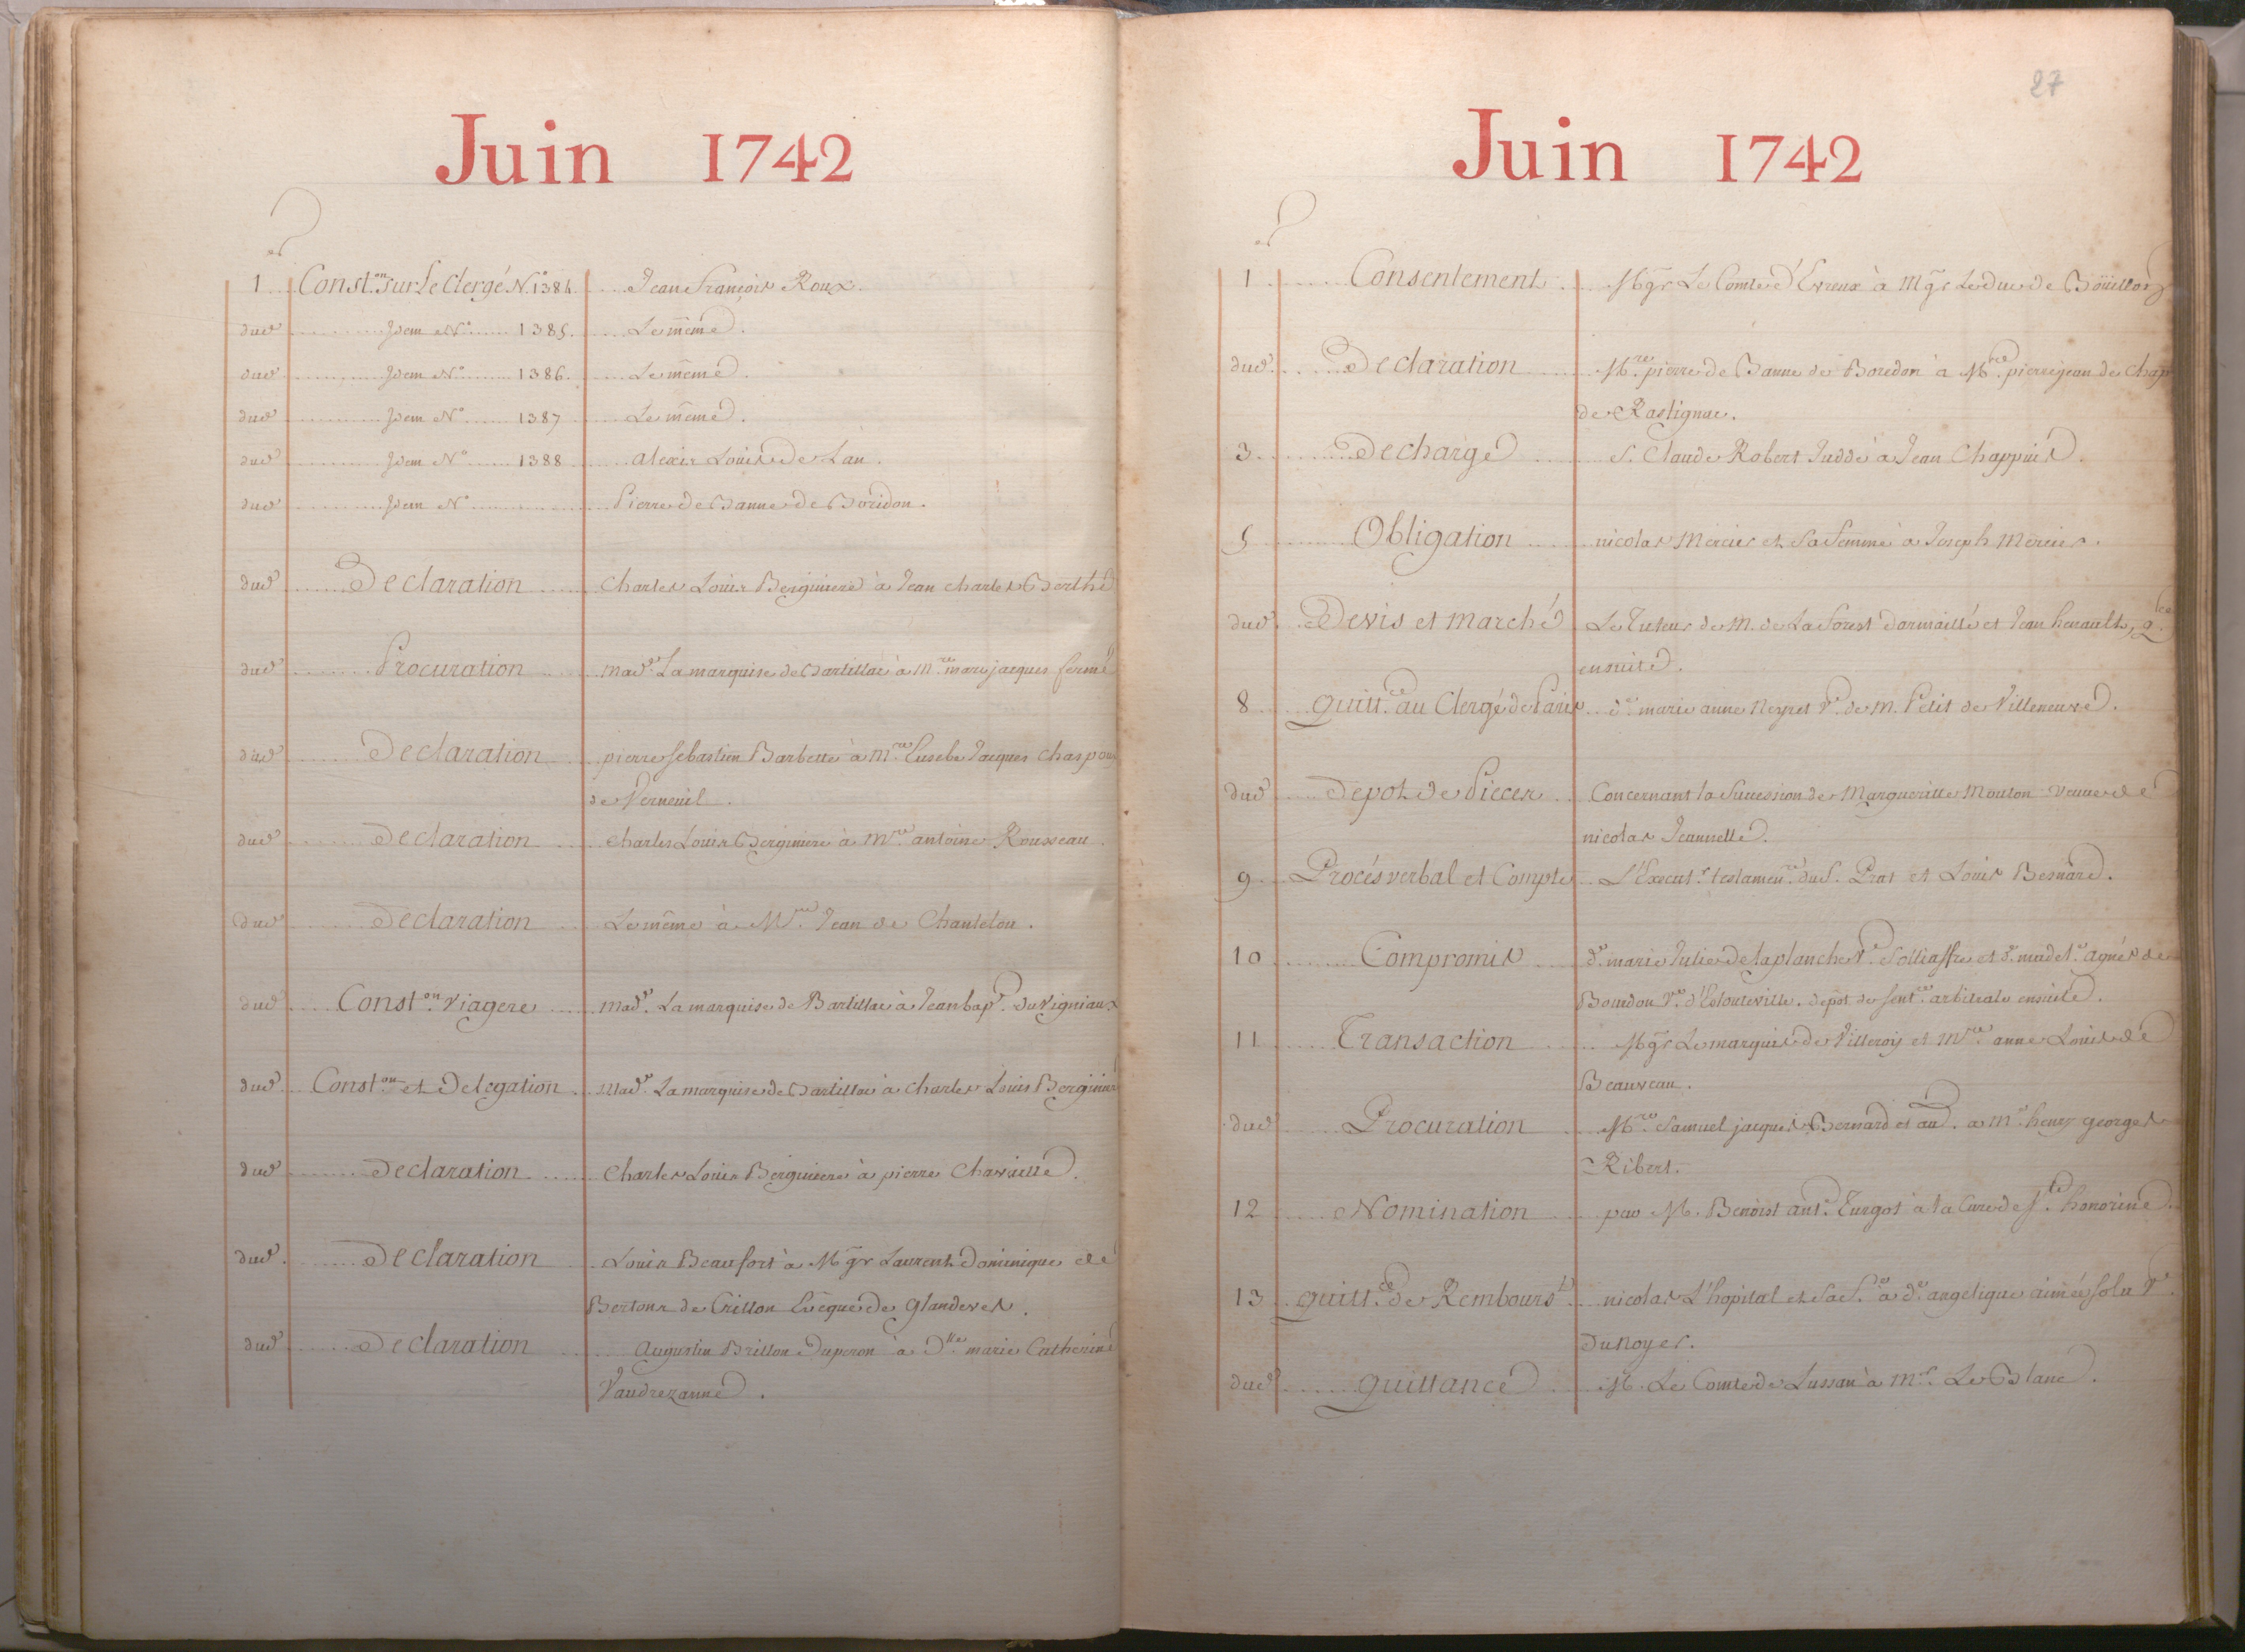 Juin 1742
1 Const.on sur Le Clergé N.° 1384. Jean François Roux.
dud Idem N.° 1385. Le même.
dud Idem N.° 1386. Le même.
dud Idem N.° 1387 Le même.
dud Idem N.° 1388 alexis Louis de Lau.
dud Idem N.° Pierre de Banne de Boridon.
dud Declaration Charles Louis Berginiere à Jean Charles Berthe
dud Procuration mad.e La marquise de Bartillac à M.re marc jacques fermé
dud Declaration pierre sebastien Barbette à M.re Eusebe Jacques Chaspoux
de Verneuil.
dud Declaration Charles Louis Berginiere à M.re antoine Rousseau.
dud Declaration Le même à M.re Jean de Chantelou.
dud Const.on viagere mad.e La marquise de Bartillac à Jean bap.te du Vigniaux
dud Const.on et Delegation Mad.e La marquise de Bartillac à Charles Louis Berginiere
dud Declaration Charles Louis Berginiere à pierre Chavaille.
dud. Declaration Louis Beaufort à Mgr Laurent Dominique de
Bertons de Crillon Evêque de Glandeves.
dud Declaration Augustin Brillon Duperon à D.lle marie Catherine
Vaudrezanne.
27
Juin 1742
1 Consentement Mgr Le Comte d'Evreux à Mgr Le duc de Boüillon
dud. Declaration M.re pierre de Banne de Boredon à M.re pierre jean de Chap
de Rastignac.
3 Decharge S. Claude Robert Juddé à Jean Chappuis.
5 Obligation nicolas Mercier et sa femme à Joseph Mercier.
dud. Devis et marché Le Tuteur de M. de La Forest darmaillé et Jean henault, q.ce
ensuite.
8 Quitt.ce au Clergé de Paris d.e marie anne Neyret V.e de M. Petit de Villeneuve.
dud Depot de Pieces Concernant la Succession de Marguerite Mouton veuve de
nicolas Jeannelle.
9 Procés verbal et Compte L'Execut.r testamen.re du S. Prat et Louis Besnard.
10 Compromis d.e marie Julie de la planche V.e Solliaffre et d.e madel.e agnés de
Bourdon V.e d'Estouteville. depot de sent.ce arbitrale ensuite.
11 Transaction Mgr Le marquis de Villeroy et M.re anne Louis de
Beauveau.
dud Procuration M.re Samuel jacques Bernard et au. à M.e henry georges
Ribert.
12 Nomination par M. Benoist ant.e Turgot à la Cure de S.te honorine.
13 quitt.ce de Rembours.t nicolas L'hopital et sa f.e à d.e angelique aimée solu V.e
Dunoyer.
dud quittance M. Le Comte de Lussan à M.r Le Blanc.